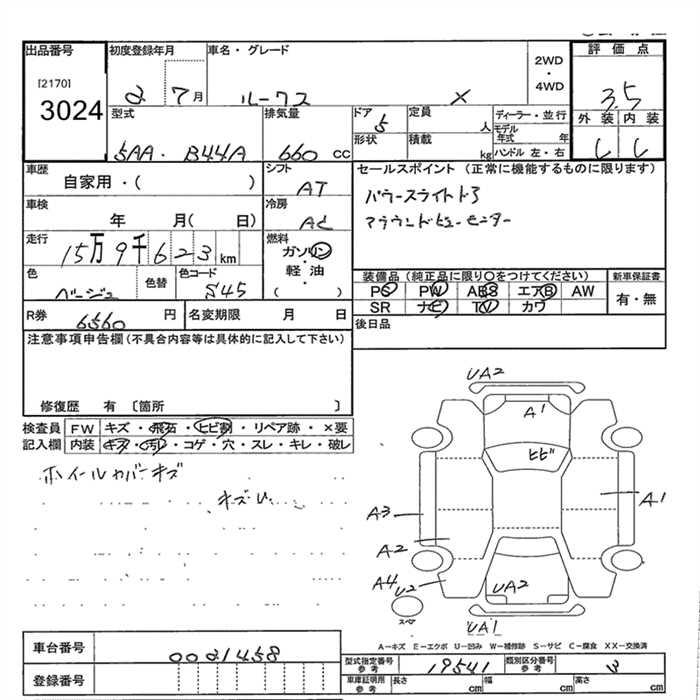 出品番号 初度登録年月 車名・グレード 2WD・4WD 評価点
[2170]
3024 2 7月 ルークス X 3.5
型式 排気量 ドア 5 定員 人 ディーラー・並行 外装 内装
形状 積載 kg モデル年式 年
5AA・B44A 660 CC ハンドル 左・右
車歴 シフト セールスポイント(正常に機能するものに限ります)
自家用・( ) AT パワースライドドア
車検 冷房
年 月( 日) AC
走行 燃料
15万9千623km ガソリン
軽・油
( )
色 色替 色コード 装備品(純正品に限り○をつけてください) 新車保証書
ベージュ S45 PS PW ABS エアB AW 有・無
SR ナビ TV カワ
R券 6560 円 名変期限 月 日 後日品
注意事項申告欄(不具合内容等は具体的に記入して下さい)
修復歴 有〔箇所 〕
検査員 FW キズ・飛石・ヒビ割・リペア跡・×要
記入欄 内装 キズ・汚れ・コゲ・穴・スレ・キレ・破レ
ホイールカバーキズ
UA2
A1
ヒビ
A3 A1
A2
A4 U2 UA2
スペア
UA1
A-キズ E-エクボ U-凹み W-補修跡 S-サビ C-腐食 XX-交換済
車台番号 0021458
型式指定番号 参考 19541 類別区分番号 参考 3
登録番号
車庫証明所 参考 長さ cm 幅 cm 高さ cm